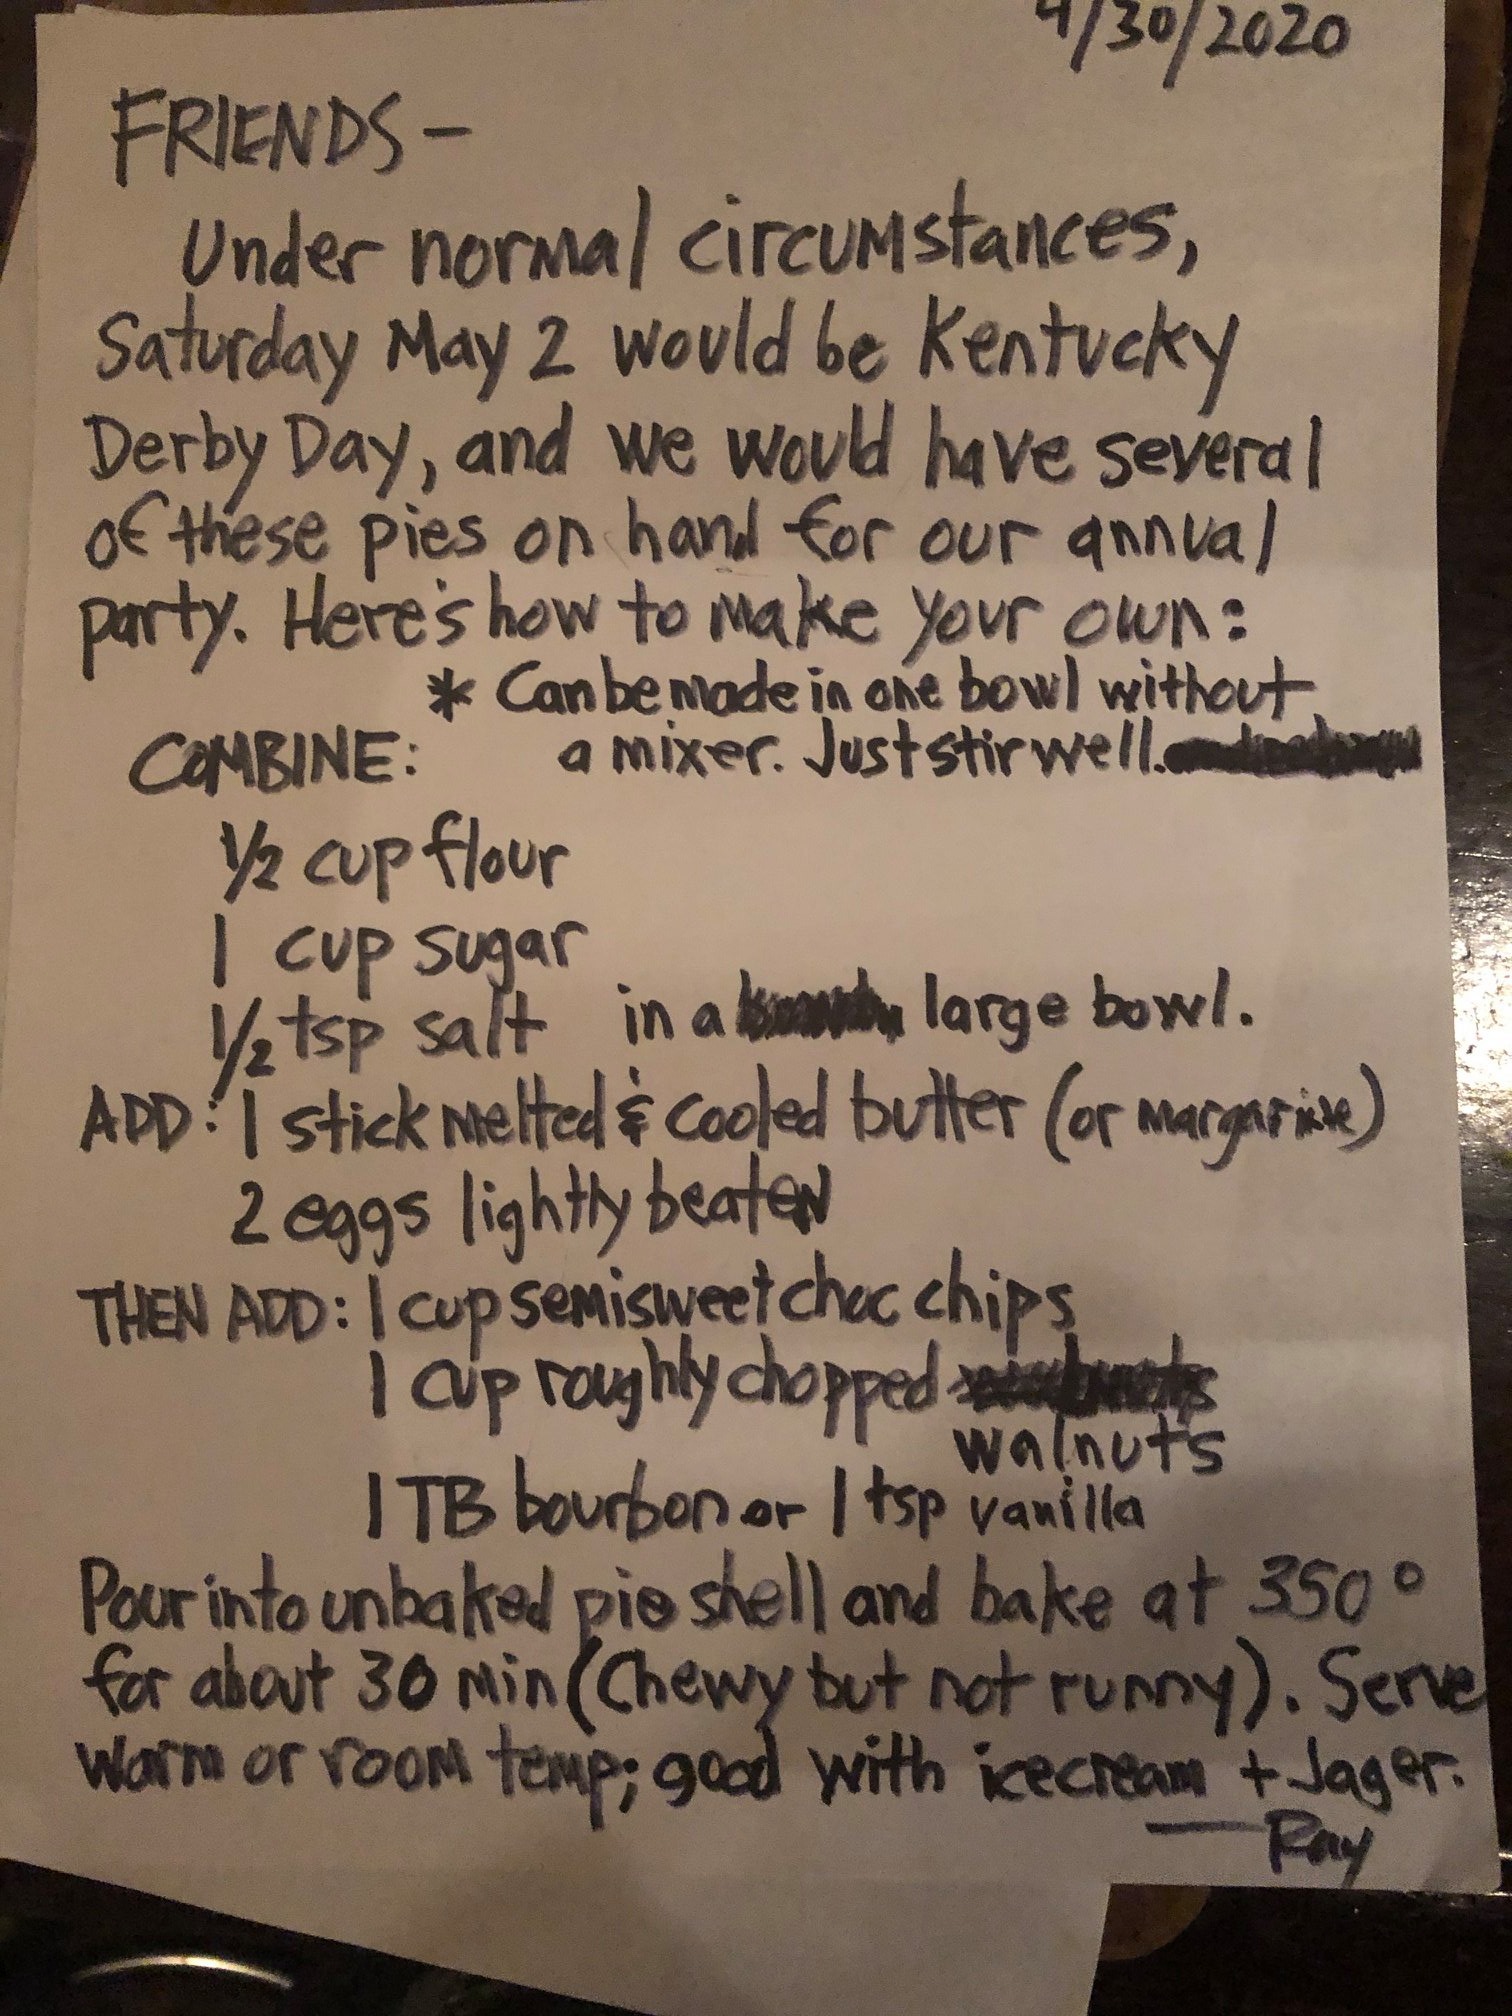 4/30/2020
FRIENDS —
Under normal circumstances,
Saturday May 2 would be Kentucky
Derby Day, and we would have several
of these pies on hand for our annual
party. Here's how to make your own:
* Can be made in one bowl without
a mixer. Just stir well.
COMBINE:
1/2 cup flour
1 cup sugar
1/2 tsp salt in a large bowl.
ADD: 1 stick melted & cooled butter (or margarine)
2 eggs lightly beaten
THEN ADD: 1 cup semisweet choc chips
1 cup roughly chopped
walnuts
1 TB bourbon or 1 tsp vanilla
Pour into unbaked pie shell and bake at 350°
for about 30 min (Chewy but not runny). Serve
warm or room temp; good with icecream + Jager.
— Ray